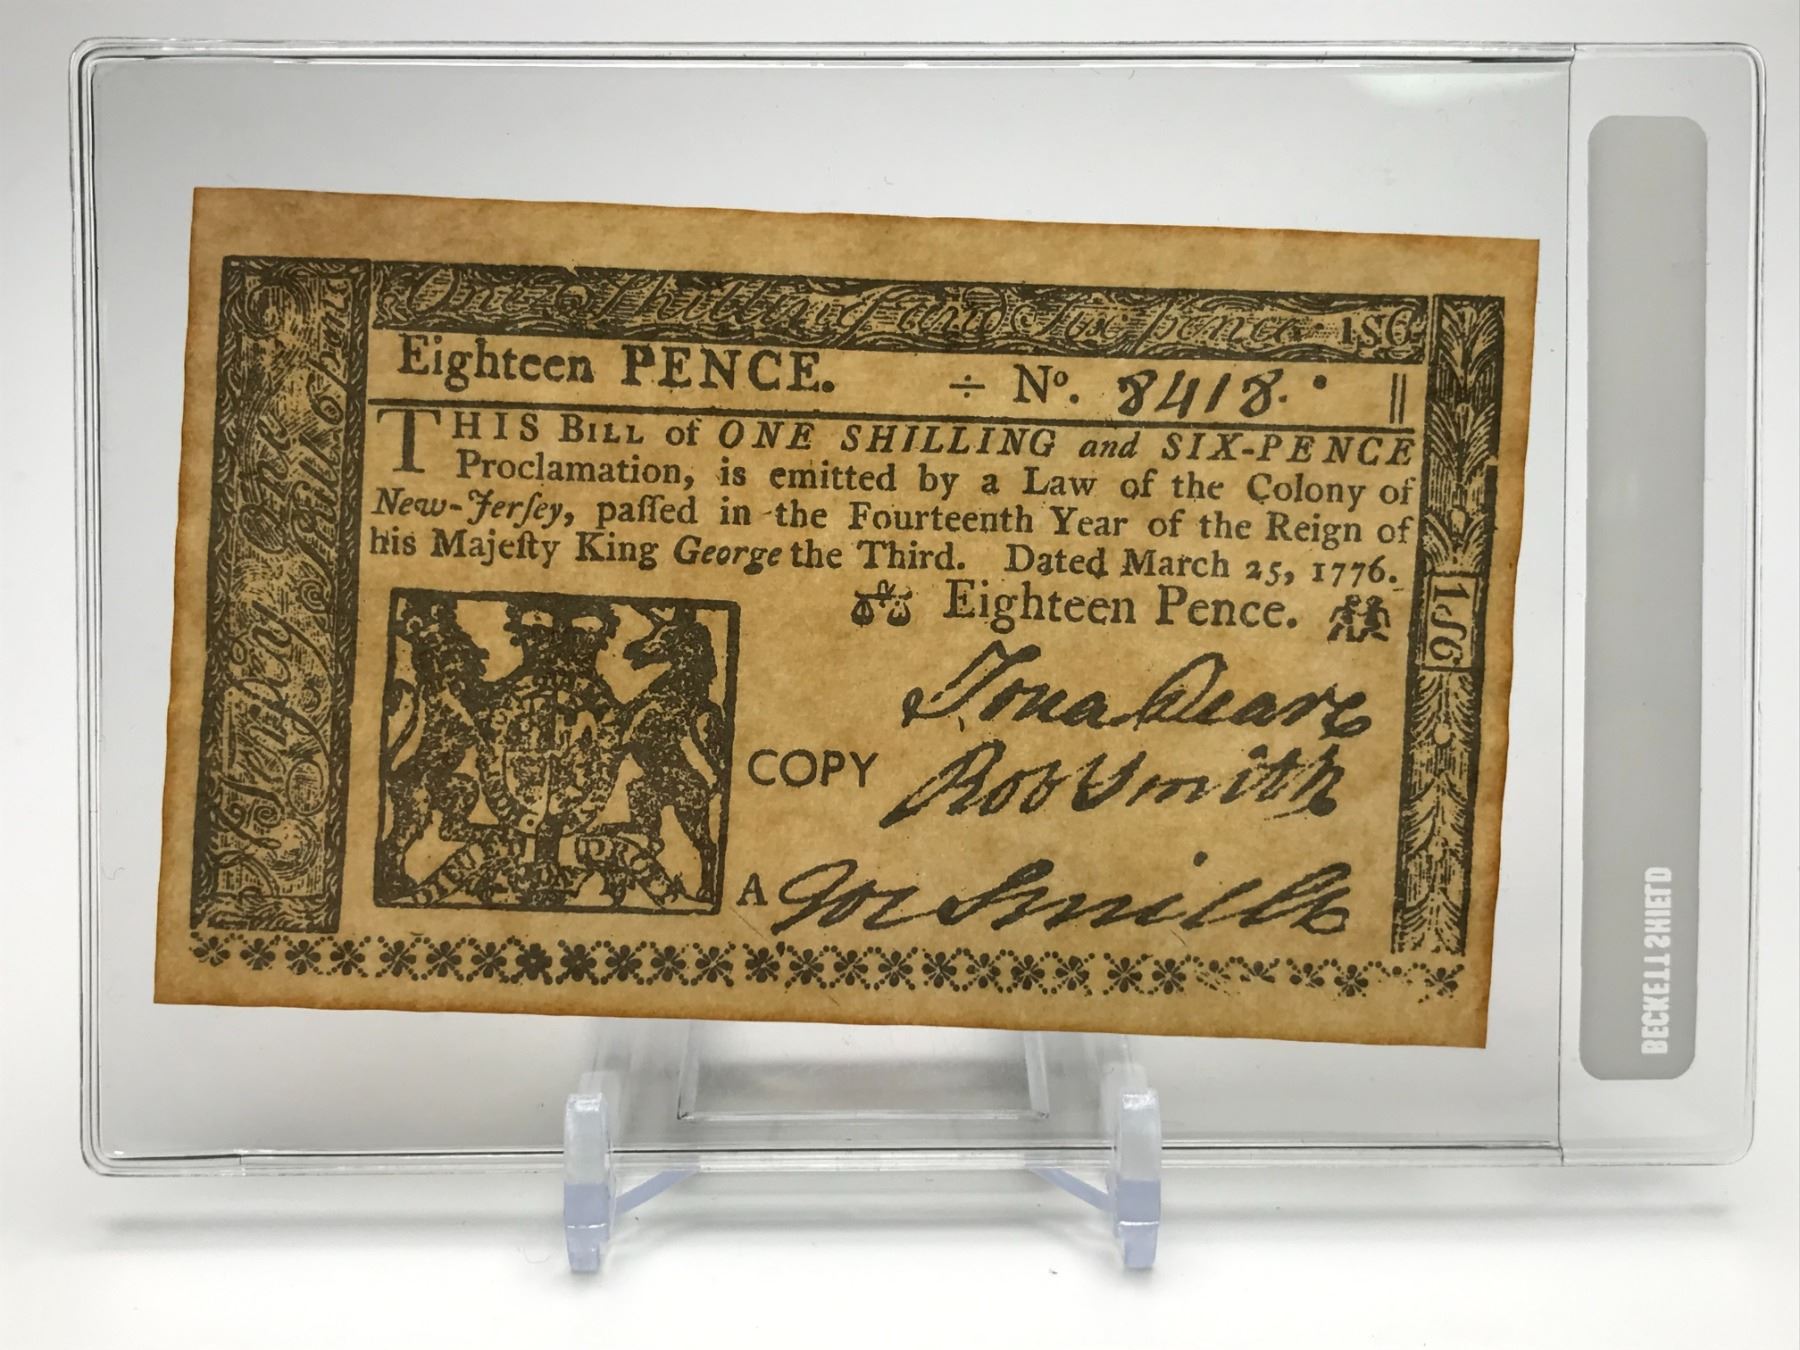 One Shilling and Six pence. 1S6
Eighteen PENCE. ÷ Nº. 8418.
THIS BILL of ONE SHILLING and SIX-PENCE
Proclamation, is emitted by a Law of the Colony of
New-Jerſey, paſſed in the Fourteenth Year of the Reign of
his Majeſty King George the Third. Dated March 25, 1776.
Eighteen Pence.
1ſ6
Jona Deare
COPY Rob Smith
A Jos Smith
BECKETT SHIELD